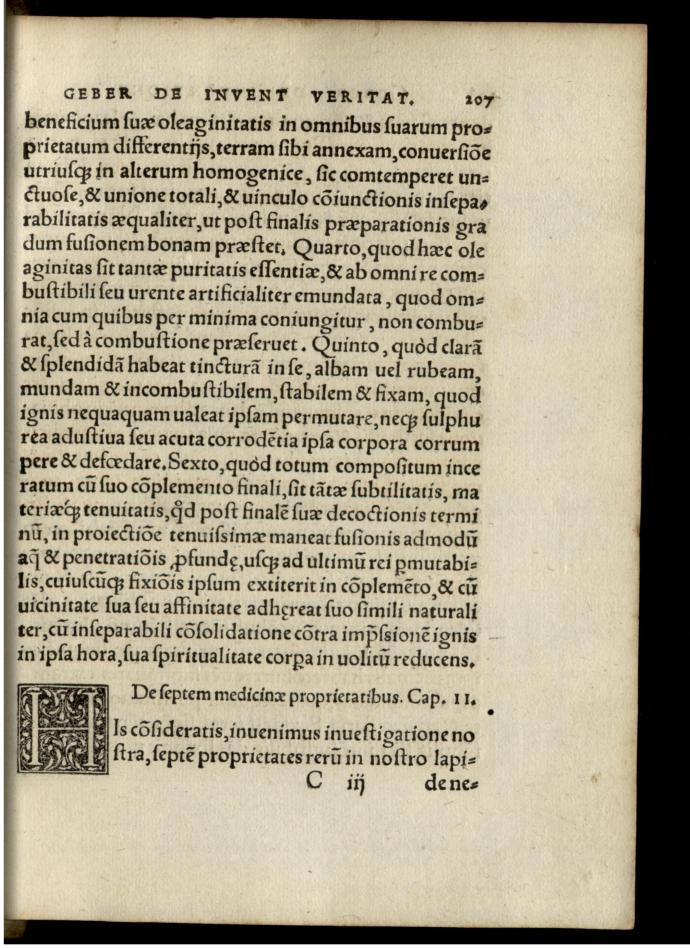 GEBER DE INVENT VERITAT. 207
beneficium ſuæ oleaginitatis in omnibus ſuarum pro⸗
prietatum differentijs, terram ſibi annexam, conuerſiõe
utriuſqꝫ in alterum homogenice, ſic comtemperet un⸗
ctuoſe, & unione totali, & uinculo cõiunctionis inſepa⸗
rabilitatis æqualiter, ut poſt finalis præparationis gra
dum fuſionem bonam præſtet. Quarto, quod hæc ole
aginitas ſit tantæ puritatis eſſentiæ, & ab omni re com⸗
buſtibili ſeu urente artificialiter emundata, quod om⸗
nia cum quibus per minima coniungitur, non combu⸗
rat, ſed à combuſtione præſeruet. Quinto, quòd clarã
& ſplendidã habeat tincturã in ſe, albam uel rubeam,
mundam & incombuſtibilem, ſtabilem & fixam, quod
ignis nequaquam ualeat ipſam permutare, neqꝫ ſulphu
rea aduſtiua ſeu acuta corrodẽtia ipſa corpora corrum
pere & defœdare. Sexto, quòd totum compoſitum ince
ratum cũ ſuo cõplemento finali, ſit tãtæ ſubtilitatis, ma
teriæqꝫ tenuitatis, qd̃ poſt finalẽ ſuæ decoctionis termi
nũ, in proiectiõe tenuiſsimæ maneat fuſionis admodũ
aq̃ & penetratiõis ꝓfundę, uſqꝫ ad ultimũ rei ꝑmutabi⸗
lis, cuiuſcũqꝫ fixiõis ipſum extiterit in cõplemẽto, & cũ
uicinitate ſua ſeu affinitate adhęreat ſuo ſimili naturali
ter, cũ inſeparabili cõſolidatione cõtra imp̃ſsionẽ ignis
in ipſa hora, ſua ſpiritualitate corꝑa in uolitũ reducens.
De ſeptem medicinæ proprietatibus. Cap. II.
HIs cõſideratis, inuenimus inueſtigatione no
ſtra, ſeptẽ proprietates rerũ in noſtro lapi⸗
C iij de ne⸗